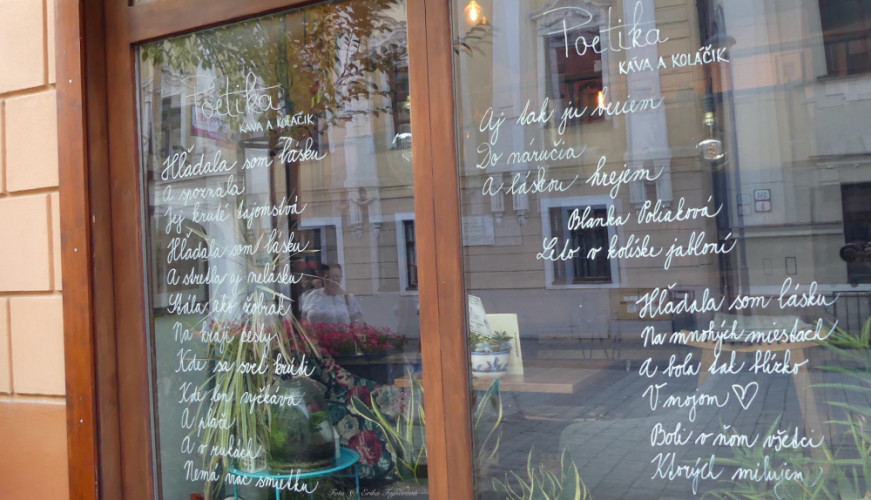 Poetika
KÁVA A KOLÁČIK
Hľadala som lásku
A spoznala
Jej kruté tajomstvá
Hľadala som lásku
A stretla aj nelásku
Stála ako žobrák
Na kraji cesty
Kde sa svet krúti
Kde len vyčkáva
A plače
A v rukách
Nemá viac smietku
Poetika
KÁVA A KOLÁČIK
Aj tak ju beriem
Do náručia
A láskou hrejem
Blanka Poliaková
Leto v kolíske jabloní
Hľadala som lásku
Na mnohých miestach
A bola tak blízko
V mojom ♡
Boli v ňom všetci
Ktorých milujem
Foto © Erika